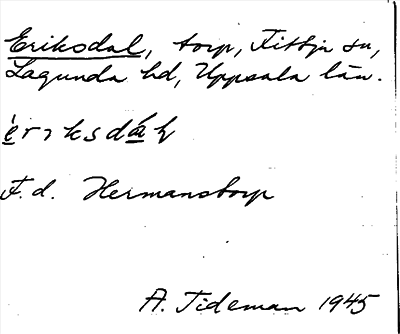 Eriksdal, torp, Fittja sn,
Lagunda hd, Uppsala län.
F.d. Hermanstorp
A. Tideman 1945